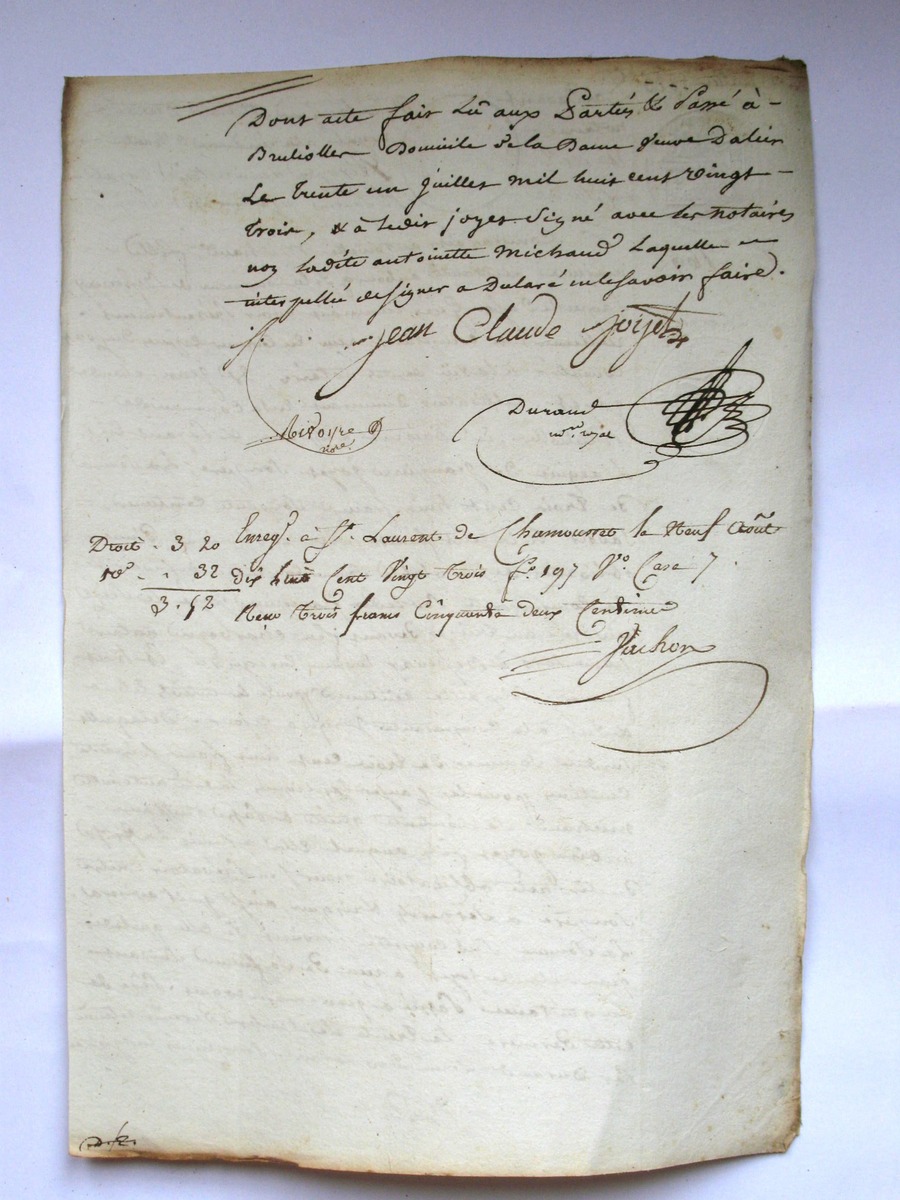 Dont acte fait Lû aux Parties & Passé à -
Bruliolles Domicile de la Dame veuve Dalin
Le Trente un juillet mil huit cent vingt -
Trois, & à ledit joyet Signé avec les notaires
non ladite antoinette michaud Laquelle
interpellée de signer a Declaré ne le savoir faire.
jean Claude joijet
Durand
nre royal
Rivoyre
nore
Droit . 3 20 Enregt. à St. Laurent de Chamousset le Neuf Août
10e . . 32 dix huit Cent Vingt Trois fo. 197 Vo. Case 7
3 . 52 Reçu trois francs Cinquante deux Centimes
Vachon